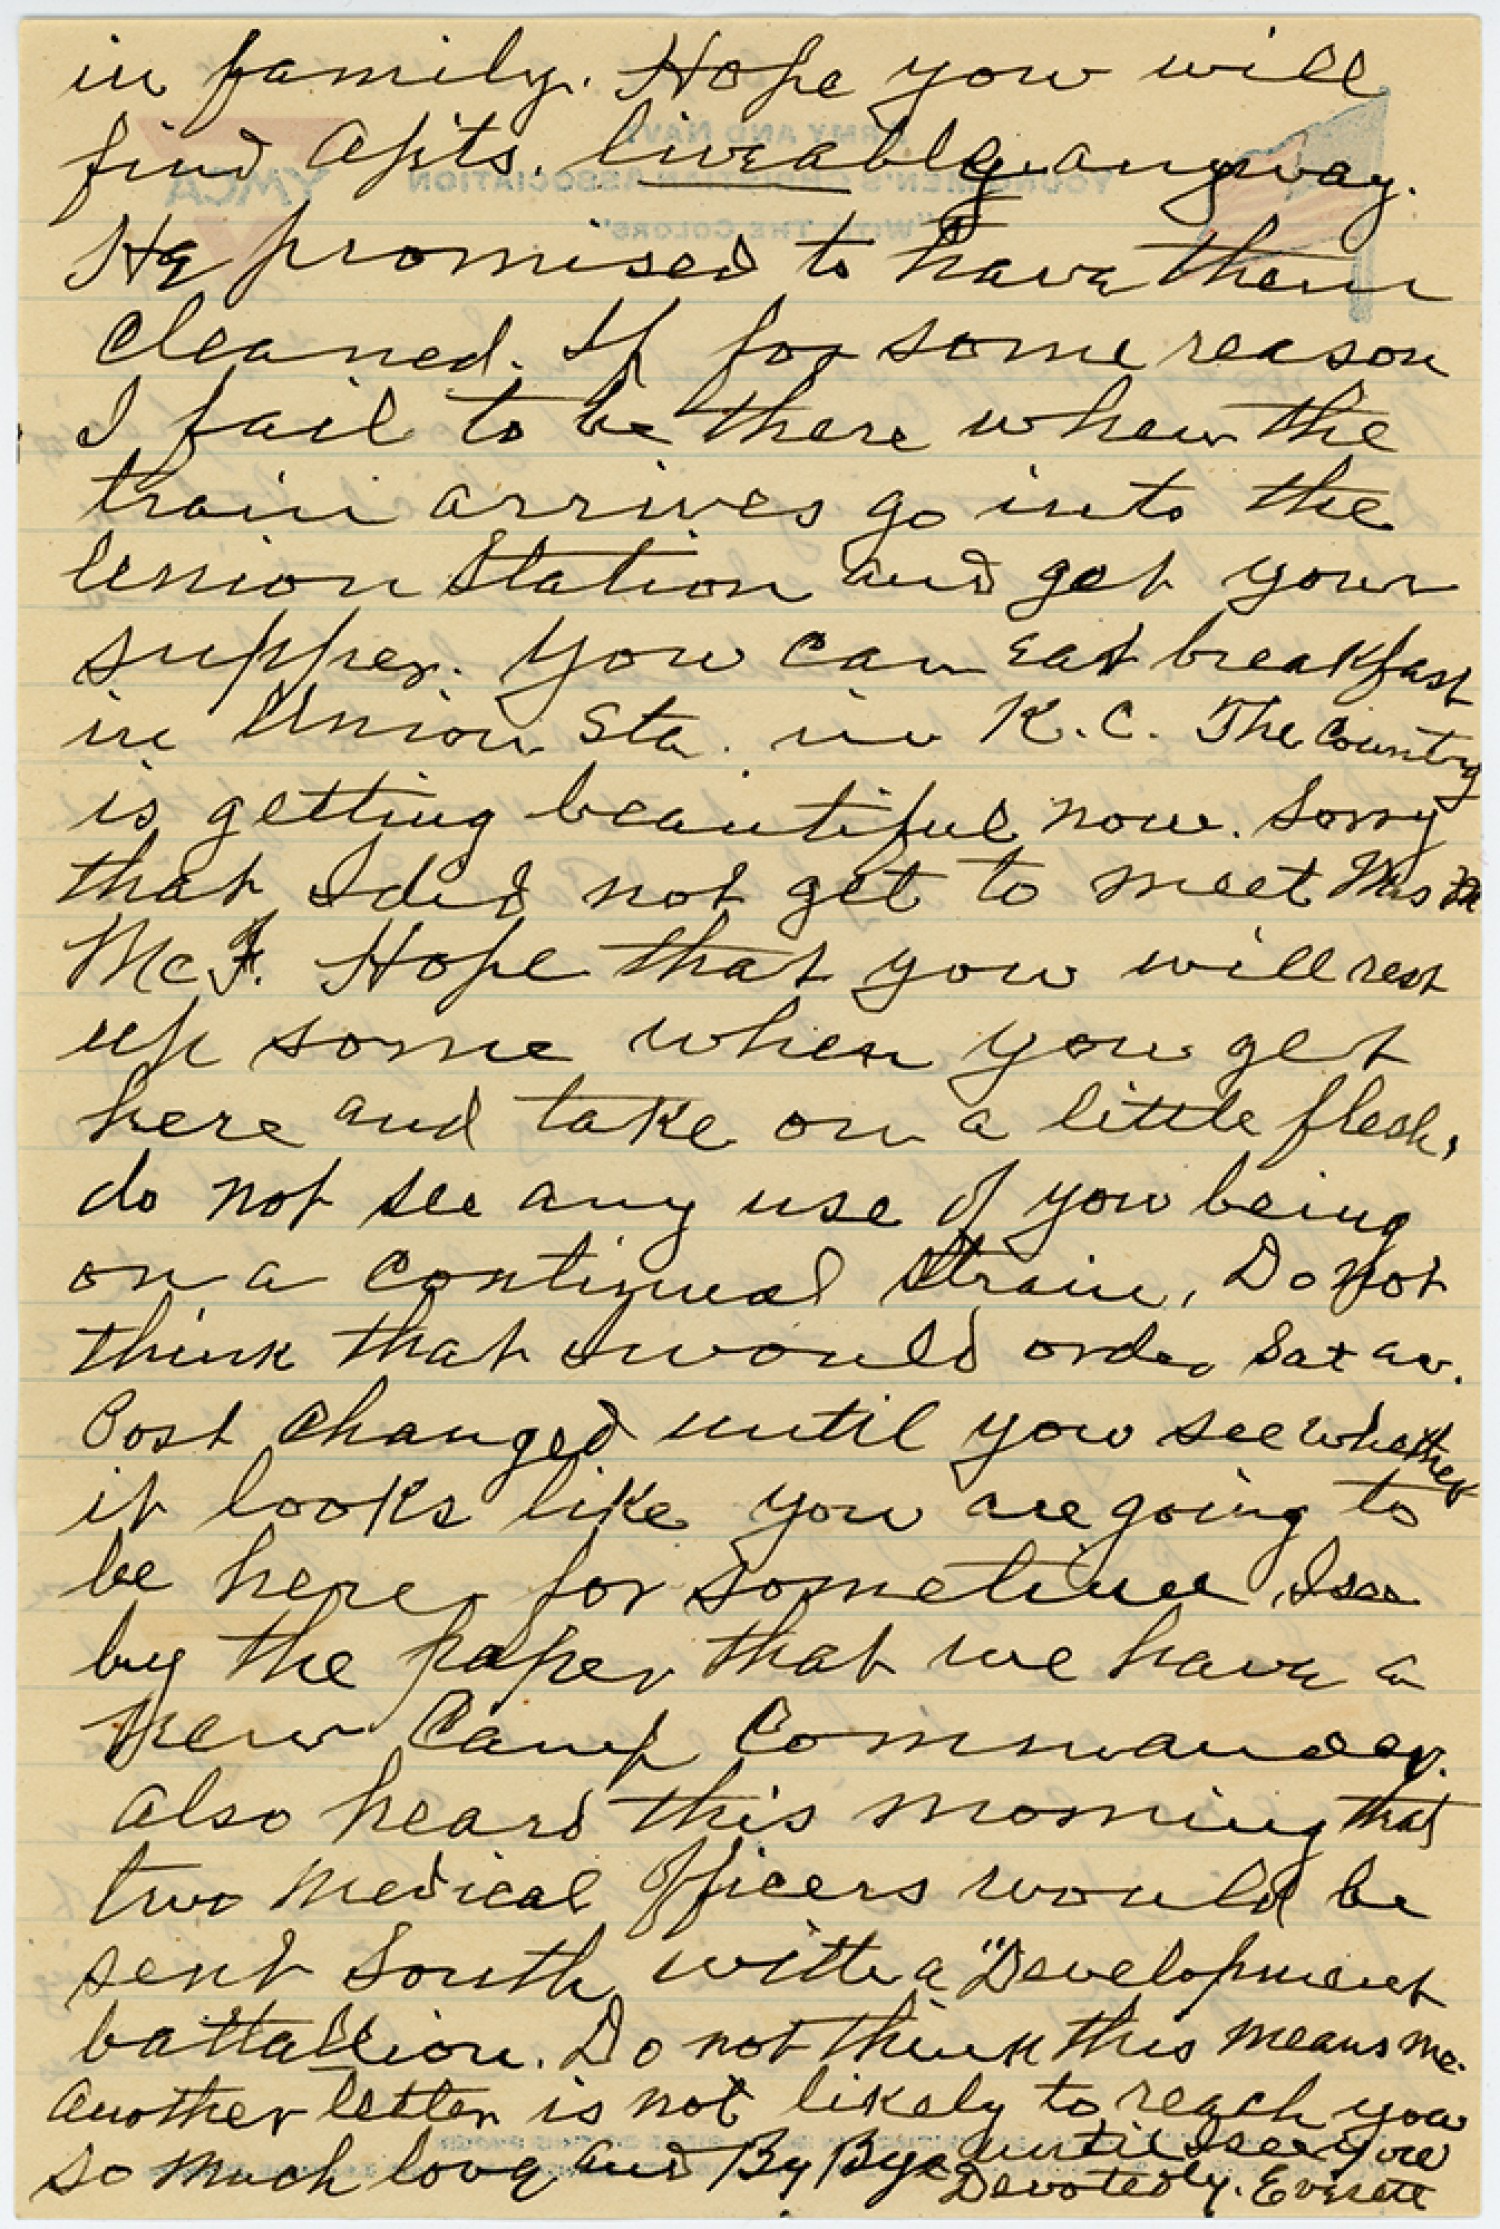 in family. Hope you will
find apts. liveable anyway.
He promised to have them
cleaned. If for some reason
I fail to be there when the
train arrives go into the
Union Station and get your
supper. You can eat breakfast
in Union Sta. in K.C. The Country
is getting beautiful now. Sorry
that I did not get to meet Mrs
McF. Hope that you will rest
up some when you get
here and take on a little flesh,
do not see any use of you being
on a continual strain. Do not
think that I would order Sat ev.
Post changed until you see whether
it looks like you are going to
be here for sometime. I see
by the paper that we have a
new Camp Commander.
Also heard this morning that
two Medical Officers would be
sent South with a "Development
battallion. Do not think this means me.
Another letter is not likely to reach you
so much love and By Bye until I see you
Devotedly. Everett